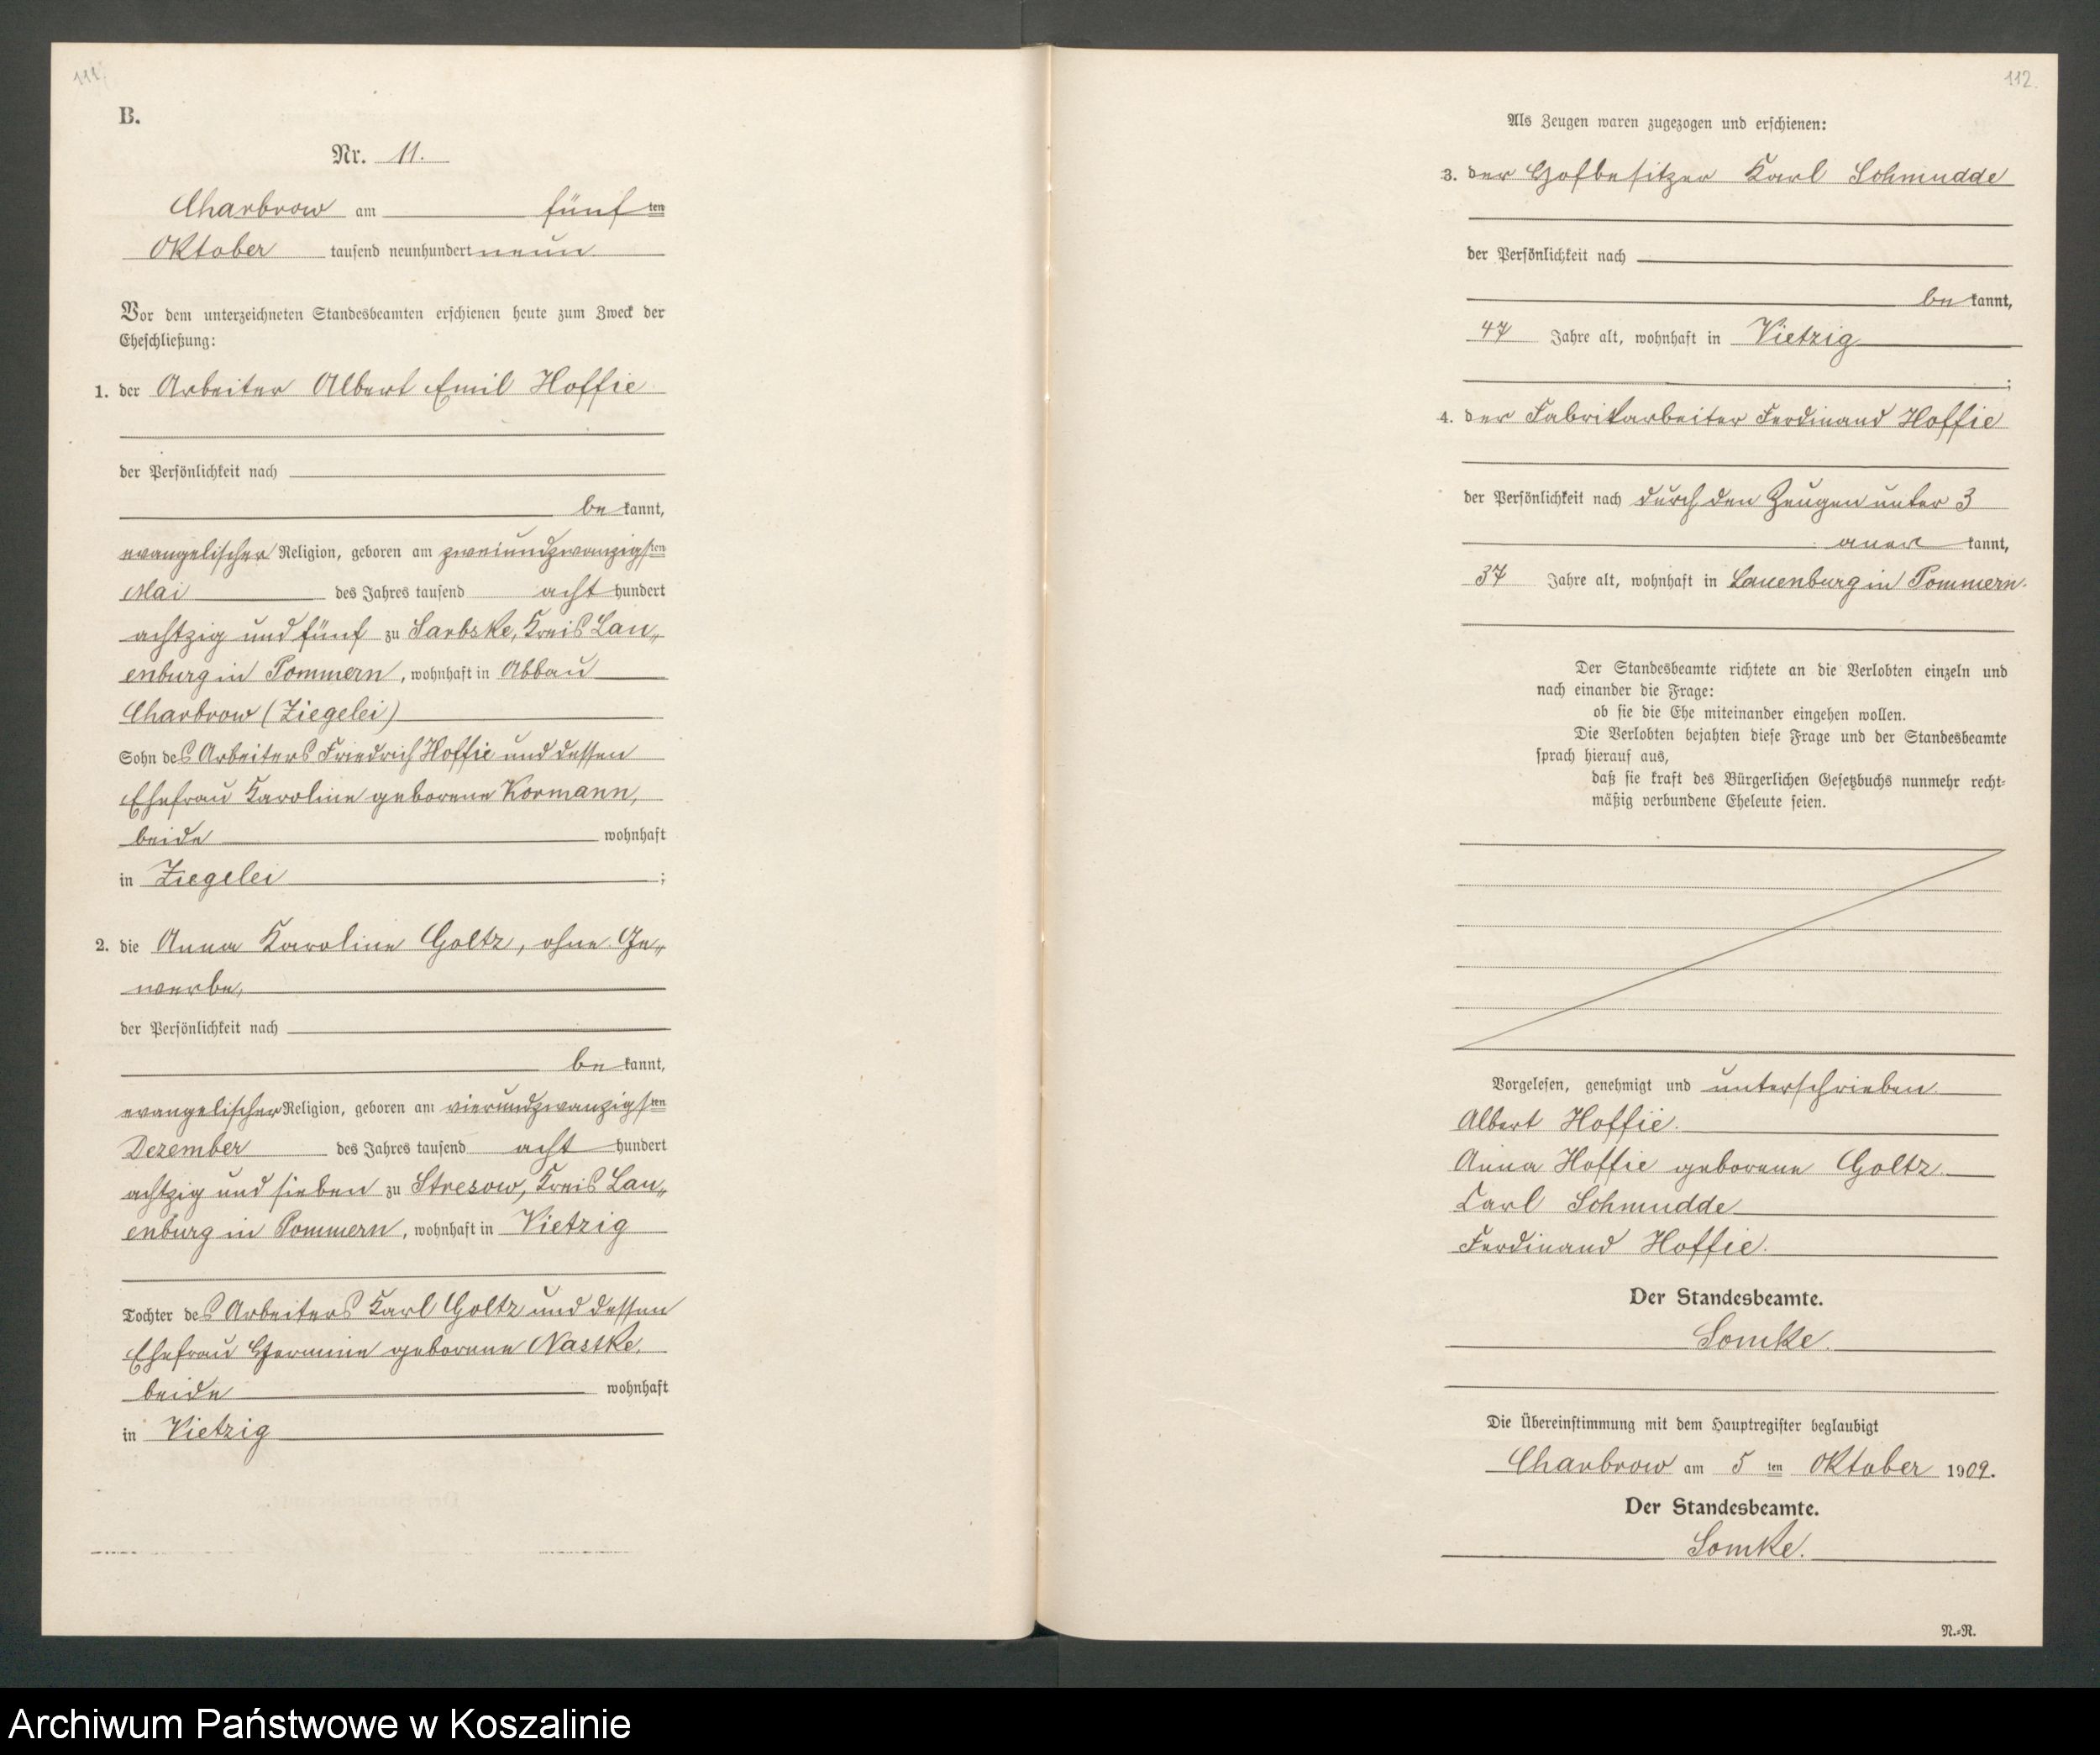 111.
B.
Nr. 11.
Charbrow am fünften
Oktober tausend neunhundert neun.
Vor dem unterzeichneten Standesbeamten erschienen heute zum Zweck der
Eheschließung:
1. der Arbeiter Albert Emil Hoffie
der Persönlichkeit nach
be kannt,
evangelischer Religion, geboren am zweiundzwanzigsten
Mai des Jahres tausend acht hundert
achtzig und fünf zu Sarbske, Kreis Lau„
enburg in Pommern, wohnhaft in Abbau
Charbrow (Ziegelei)
Sohn des Arbeiters Friedrich Hoffie und dessen
Ehefrau Karoline geborene Kormann,
beide wohnhaft
in Ziegelei ;
2. die Anna Karoline Goltz, ohne Ge„
werbe,
der Persönlichkeit nach
be kannt,
evangelischer Religion, geboren am vierundzwanzigsten
Dezember des Jahres tausend acht hundert
achtzig und sieben zu Stresow, Kreis Lau„
enburg in Pommern, wohnhaft in Vietzig
Tochter des Arbeiters Karl Goltz und dessen
Ehefrau Hermine geborene Nastke,
beide wohnhaft
in Vietzig
112.
Als Zeugen waren zugezogen und erschienen:
3. der Hofbesitzer Karl Schmudde
der Persönlichkeit nach
be kannt,
47 Jahre alt, wohnhaft in Vietzig
;
4. der Fabrikarbeiter Ferdinand Hoffie
der Persönlichkeit nach durch den Zeugen unter 3
aner kannt,
37 Jahre alt, wohnhaft in Lauenburg in Pommern.
Der Standesbeamte richtete an die Verlobten einzeln und
nach einander die Frage:
ob sie die Ehe miteinander eingehen wollen.
Die Verlobten bejahten diese Frage und der Standesbeamte
sprach hierauf aus,
daß sie kraft des Bürgerlichen Gesetzbuchs nunmehr recht-
mäßig verbundene Eheleute seien.
Vorgelesen, genehmigt und unterschrieben.
Albert Hoffie.
Anna Hoffie geborene Goltz.
Carl Schmudde
Ferdinand Hoffie.
Der Standesbeamte.
Somke.
Die Übereinstimmung mit dem Hauptregister beglaubigt
Charbrow am 5 ten Oktober 1909.
Der Standesbeamte.
Somke.
N.-N.
Archiwum Państwowe w Koszalinie